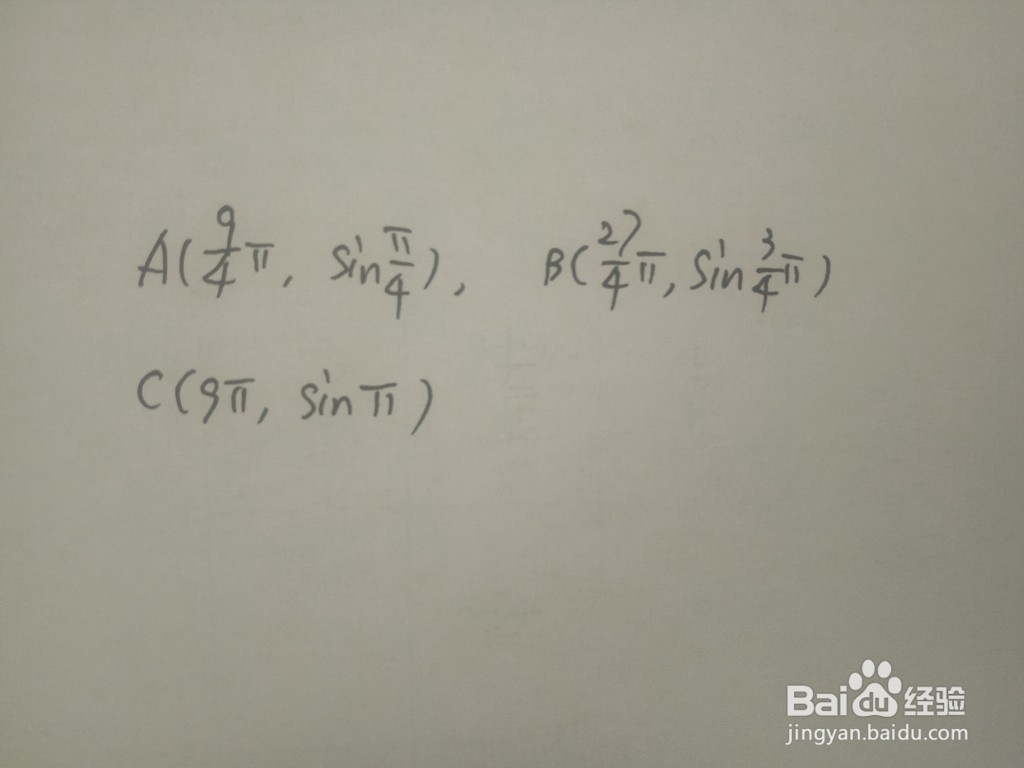 A(9/4 π, sin π/4), B(27/4 π, sin 3/4 π)
C(9π, sin π)
Baidu 经验
jingyan.baidu.com